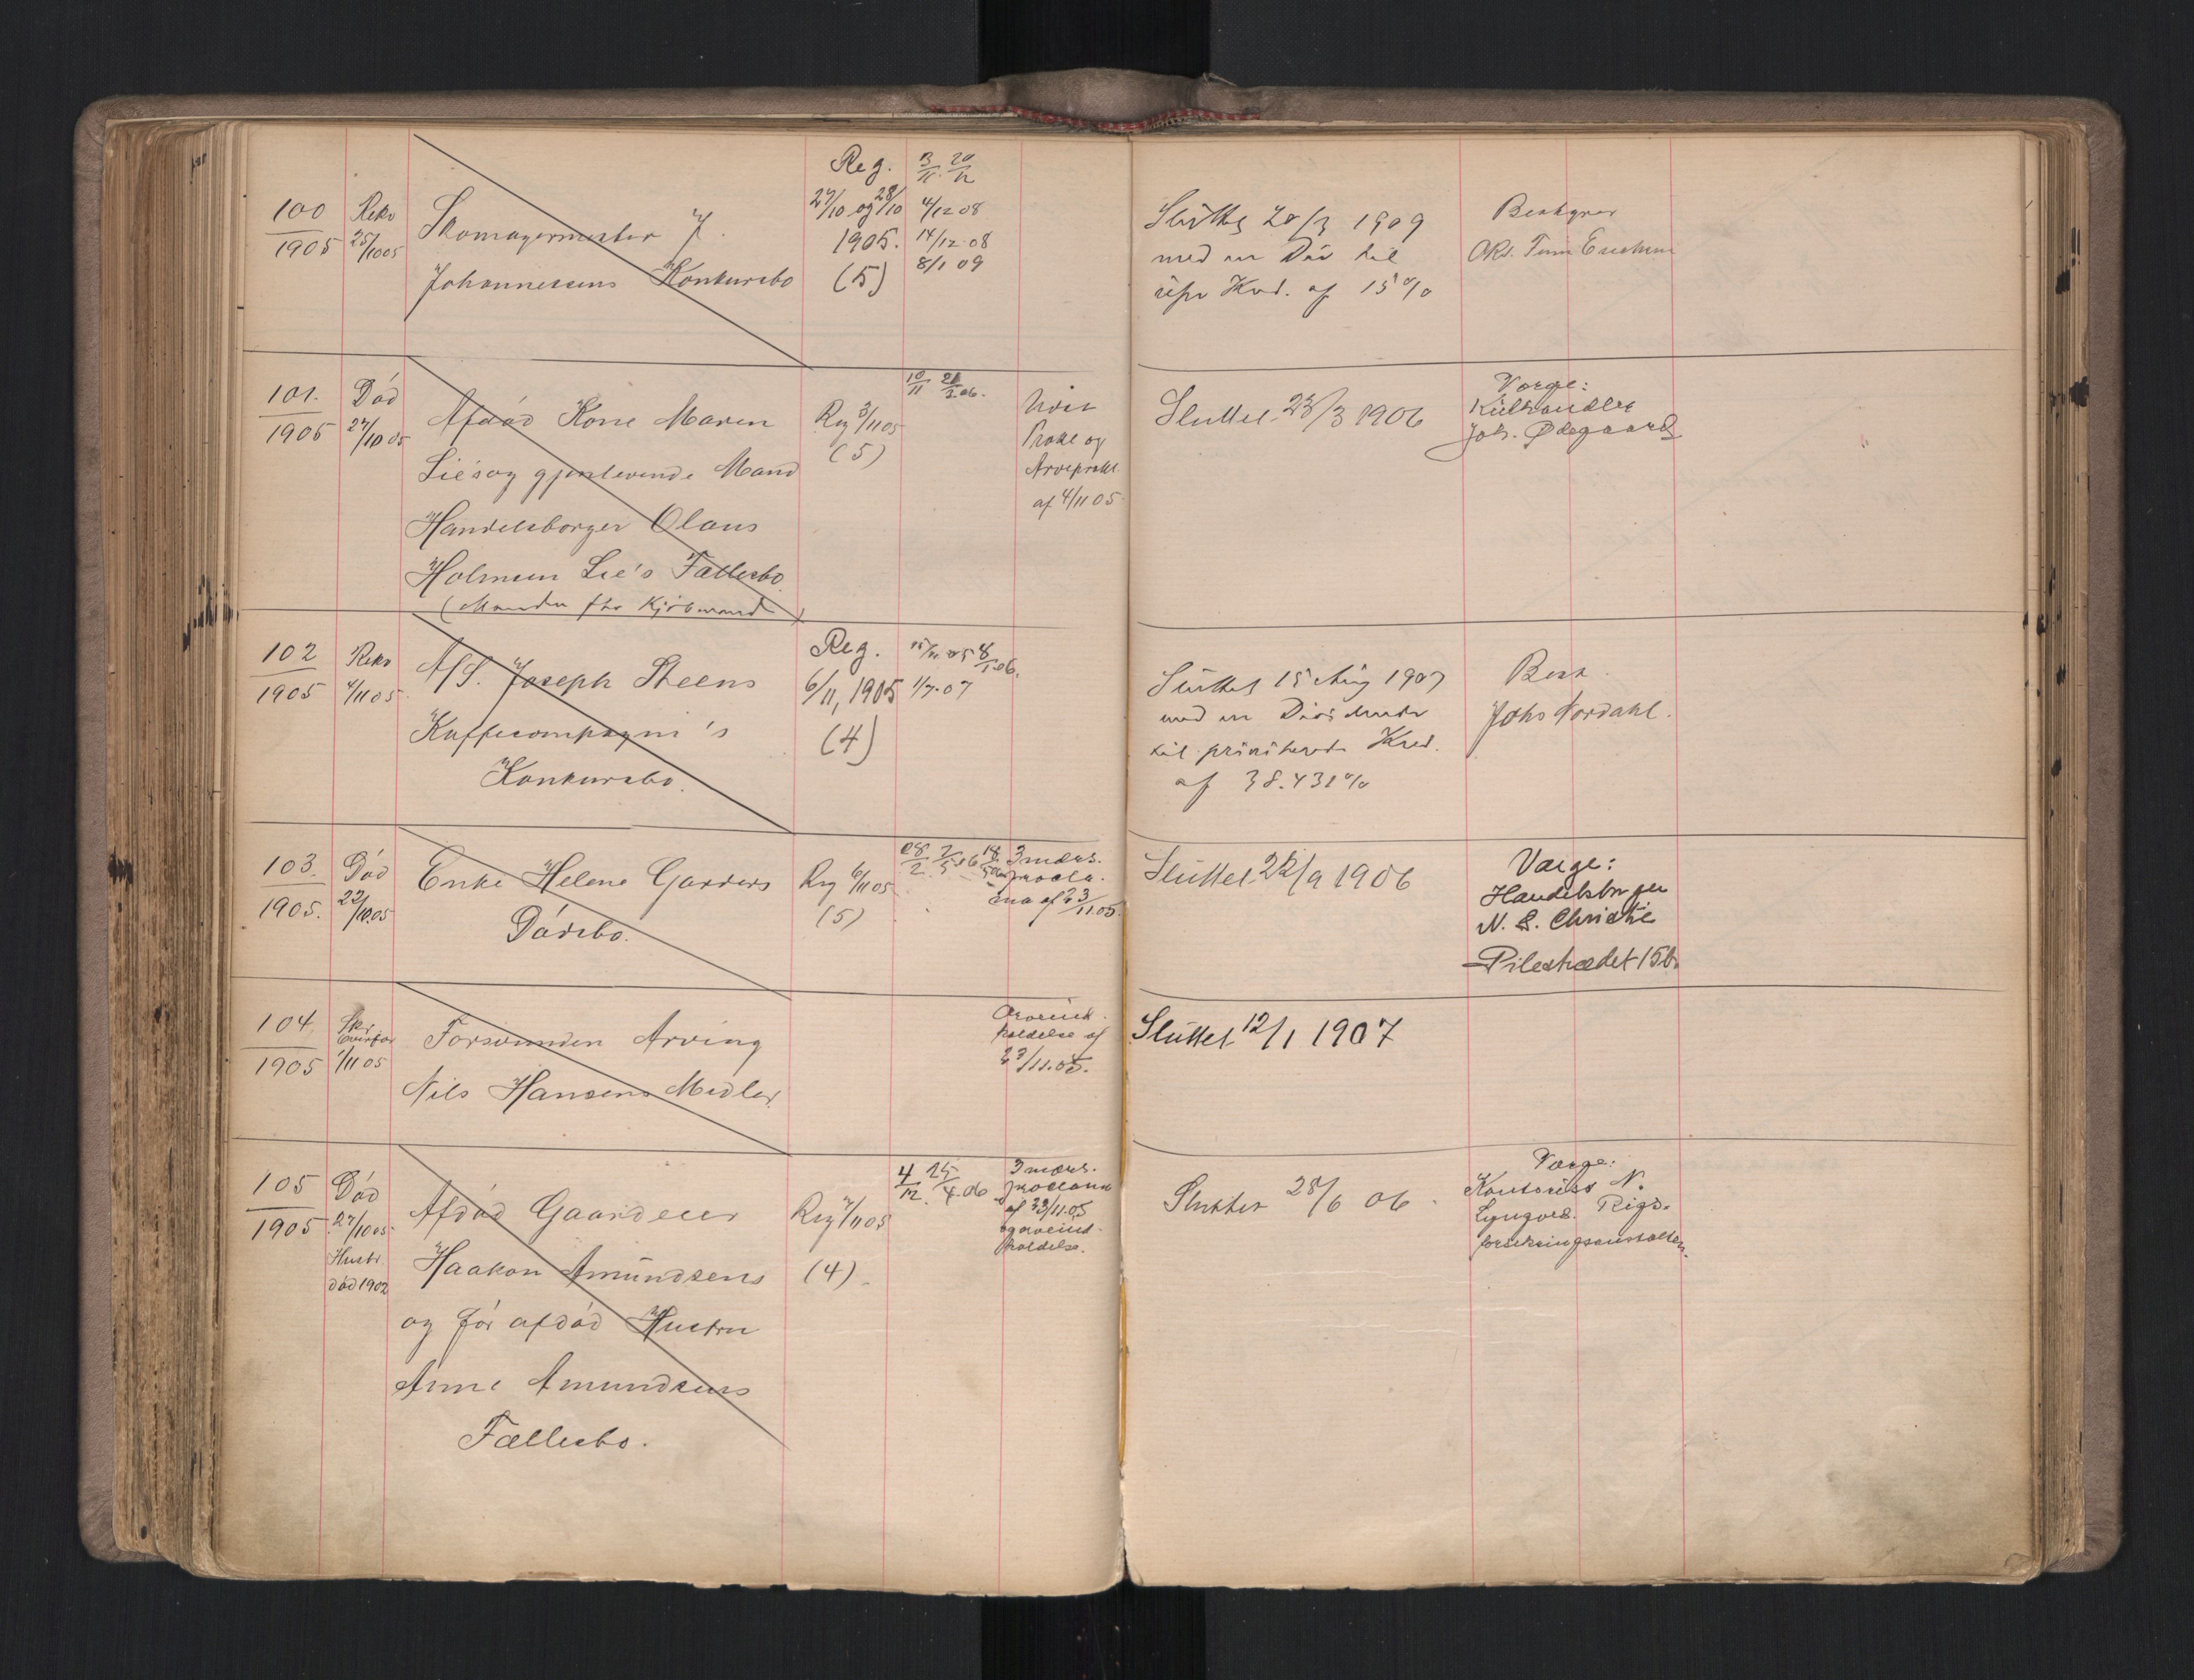 100
1905
Rekv
25/10 05
Skomagermester J.
Johannessens Konkursbo
Reg.
27/10 og 28/10
1905.
(5)
3/11. 20/12
4/12 08
14/12.08
8/1 09
Sluttet 20/3 1909
med en Div til
upr Kred. af 15 %
Bestyrer
101.
1905
Död
27/10 05
Afdöd Kone Maren
Lie's og gjenlevende Mand
Handelsborger Olaus
Holmsen Lie's Fællesbo
(Manden för Kjöbmand)
Reg 3/11 05
(5)
10/11 21/3.06.
Prokl og
Arveprokl.
af 4/11 05.
Sluttet 23/3 1906
Værge:
Kulhandler
Joh. Ødegaard
102
1905
Rekv
4/11 05.
A/S. Joseph Steens
Kaffecompagni's
Konkursbo.
Reg.
6/11, 1905
(4)
15/11.05 8/1.06.
1/7.07
Sluttet 15 Aug 1907
med en Dividende
til priviterede Kred.
af 38.431 %
Best.
Johs Nordahl.
103.
1905.
Död
22/10.05
Enke Helene Garders
Dödsbo.
Reg 6/11 05
(5)
28/2 2/5 06 18/5 06
3 mdrs.
procla-
ma af 23/11.05.
Sluttet 22/9 1906
Værge:
Handelsborger
N. S. Christie
Pilestrædet 15b.
104.
1905
Skr
1/11 05
Forsvunden Arving
Nils Hansens Midler
Arveind-
kaldelse af
23/11.05.
Sluttet 12/1 1907
105
1905
Död
27/10 05.
Hustr.
död 1902
Afdöd Gaardeier
Haakon Amundsens
og för afdöd Hustru
Anne Amundsens
Fællesbo.
Reg 7/11 05
(4).
4/12. 25/4.06
3 mdrs.
proclama
af 23/11.05
og arveind-
kaldelse.
Sluttet 28/6 06.
Værge:
Kontorist N.
Lyngved. Rigs-
forsikringsanstalten.